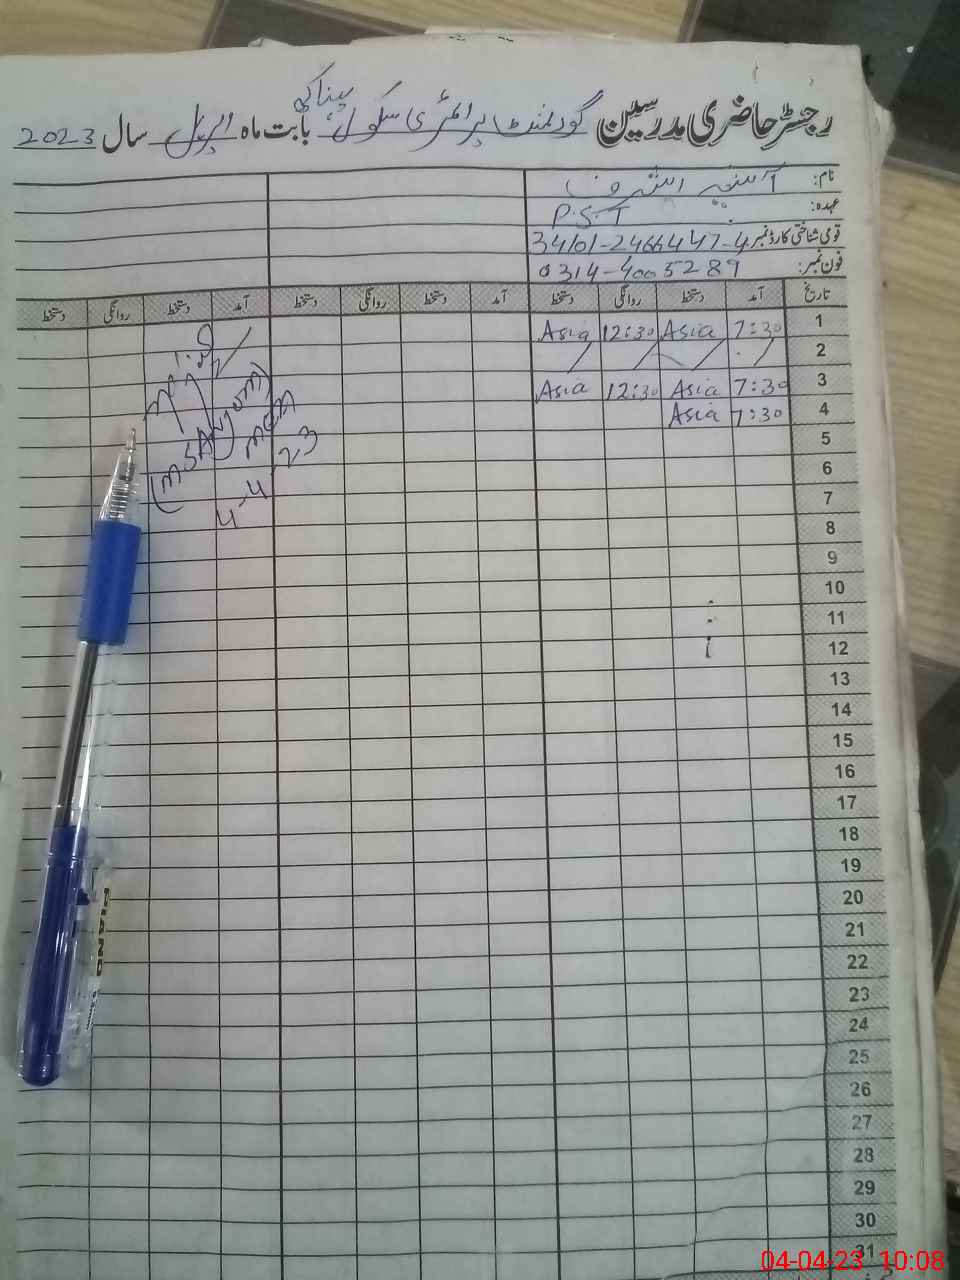 رجسٹر حاضری مدرسین گورنمنٹ پرائمری سکول بابت ماہ اپریل سال 2023
نام: آسیہ اشرف
عہدہ: P.S.T
قومی شناختی کارڈ نمبر 34101-2466447-4
فون نمبر: 0314-4005289
تاریخ آمد دستخط روانگی دستخط آمد دستخط روانگی دستخط آمد دستخط روانگی دستخط
1 7:30 Asia 12:30 Asia
2
3 7:30 Asia 12:30 Asia
4 7:30 Asia
5
6
7
8
9
10
11
12
13
14
15
16
17
18
19
20
21
22
23
24
25
26
27
28
29
30
31
4-4-23
PIANO
04-04-23 10:08